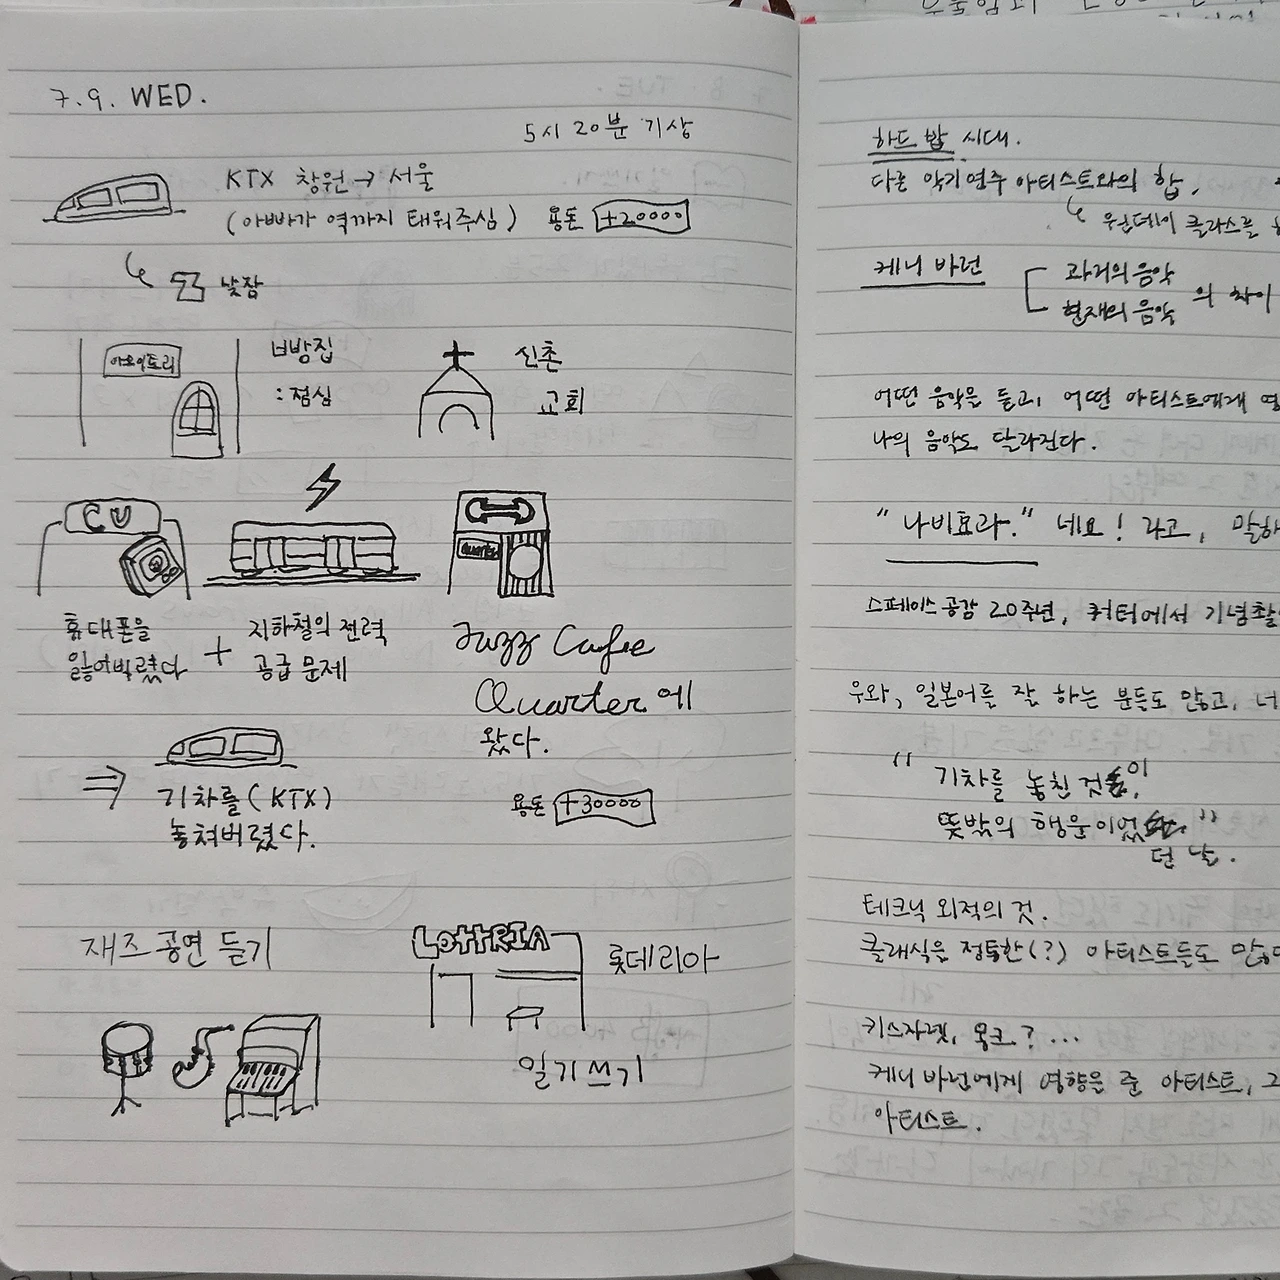 7.9. WED.
5시 20분 기상
KTX 창원 → 서울
(아빠가 역까지 태워주심) 용돈 +20000
낮잠
아오이토리
너방집
:점심
신촌
교회
CU
Quarter
휴대폰을
잃어버렸다
+
지하철의 전력
공급 문제
Jazz Cafe
Quarter에
왔다.
⇒ 기차를 (KTX)
놓쳐버렸다.
용돈 +30000
재즈 공연 듣기
LOTTRIA
롯데리아
일기 쓰기
하드 밥 시대.
다른 악기 연주 아티스트와의 합,
원데이 클라스를
케니 바런
과거의 음악
현재의 음악
의 차이
어떤 음악을 듣고, 어떤 아티스트에게
나의 음악도 달라진다.
"나비효과." 네요! 라고, 말하
스페이스 공감 20주년, 쿼터에서 기념촬영
우와, 일본어를 잘 하는 분들도 많고, 너
" 기차를 놓친 것이,
뜻밖의 행운이었던 날. "
테크닉 외적의 것.
클래식을 정통한(?) 아티스트들도 많다
키스자렛, 몽크?...
케니 바런에게 영향을 준 아티스트, 그
아티스트.